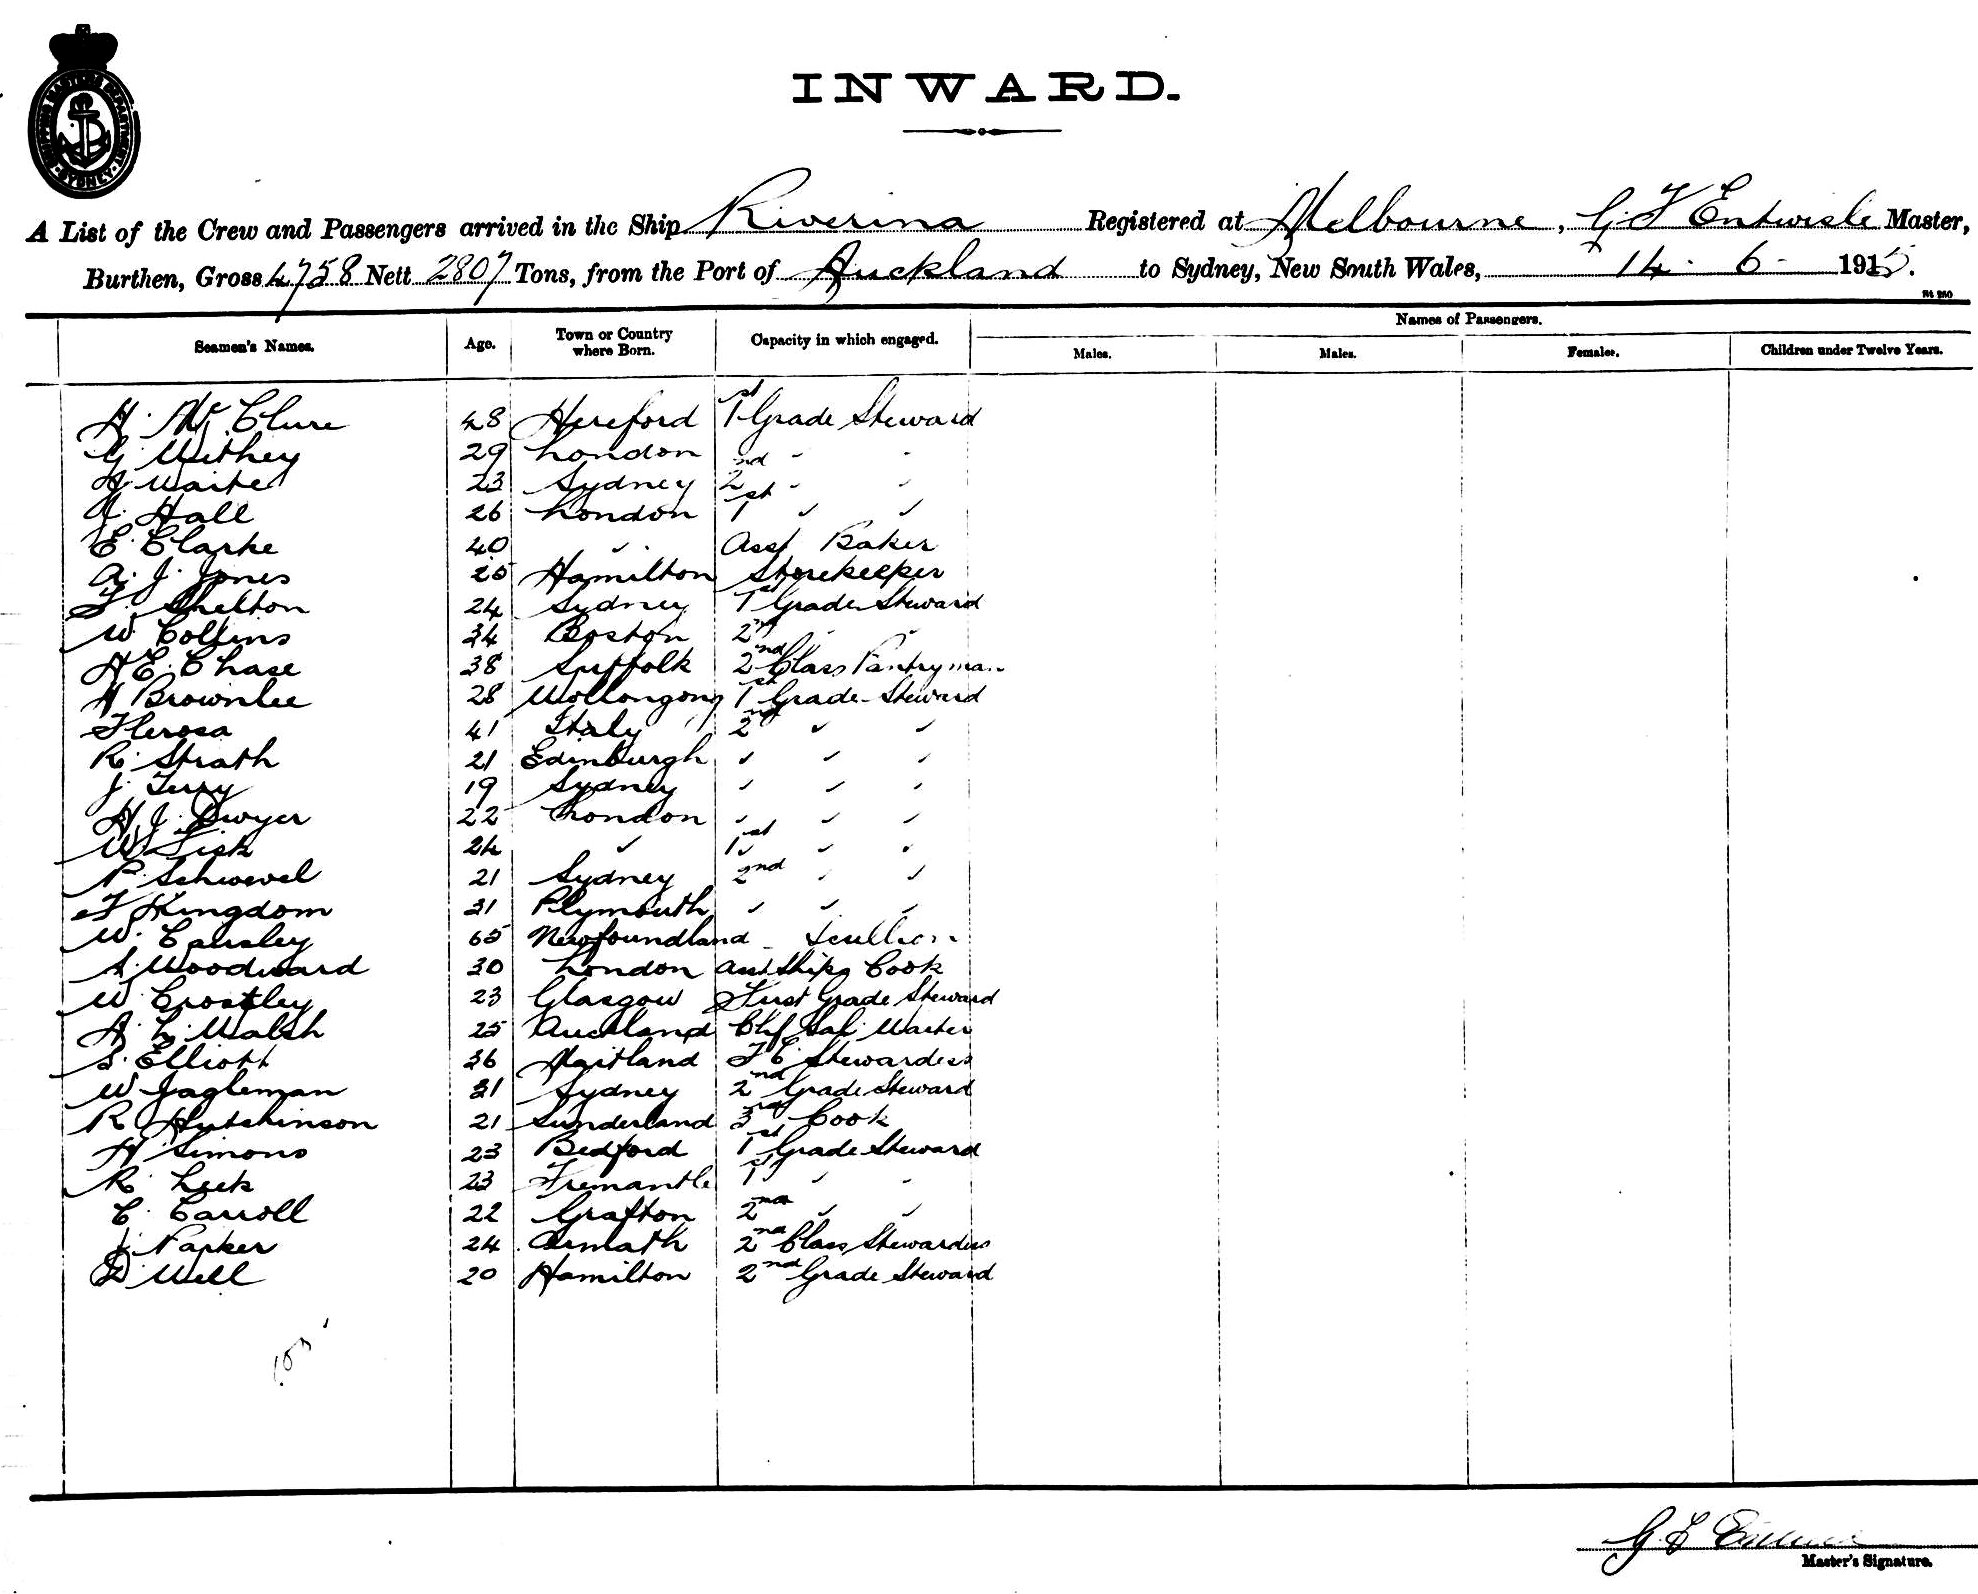 SHIPPING MASTERS DEPARTMENT SYDNEY
INWARD.
A List of the Crew and Passengers arrived in the Ship Riverina Registered at Melbourne, G F Entwisle Master,
Burthen, Gross 4758 Nett 2807 Tons, from the Port of Auckland to Sydney, New South Wales, 14 - 6 - 1915.
Seamen's Names. Age. Town or Country where Born. Capacity in which engaged. Names of Passengers.
Males. Males. Females. Children under Twelve Years.
H. McClure 48 Hereford 1st Grade Steward
G. Withey 29 London " "
A Waite 23 Sydney 2nd " "
A. Hall 26 London 1st " "
E. Clarke 40 " Asst Baker
A. J. Jones 25 Hamilton Storekeeper
F. Shelton 24 Sydney 1st Grade Steward
W. Collins 34 Boston 2nd " "
H E. Chase 38 Suffolk 2nd Class Pantryman
H Brownlee 28 Wollongong 1st Grade Steward
F Lerosa 41 Italy 2nd " "
R. Strath 21 Edinburgh " " "
J. Terry 19 Sydney " " "
H. J. Dwyer 22 London " " "
W. Fisk 24 " 1st " "
P. Schwevel 21 Sydney 2nd " "
F Kingdom 31 Plymouth " " "
W. 65 Newfoundland Scullion
S. Woodward 30 London Asst Ships Cook
W. Crostley 23 Glasgow First Grade Steward
A. L. Walsh 25 Auckland Chf Sal. Waiter
S. Elliott 36 Maitland F C. Stewardess
W Jagleman 31 Sydney 2nd Grade Steward
R Hutchinson 21 Sunderland 3rd Cook
H Simons 23 Bedford 1st Grade Steward
R. Leek 23 Fremantle 1st " "
C. Carroll 22 Grafton 2nd " "
J Parker 24 Armath 2nd Class Stewardess
D. Well 20 Hamilton 2nd Grade Steward
Master's Signature.